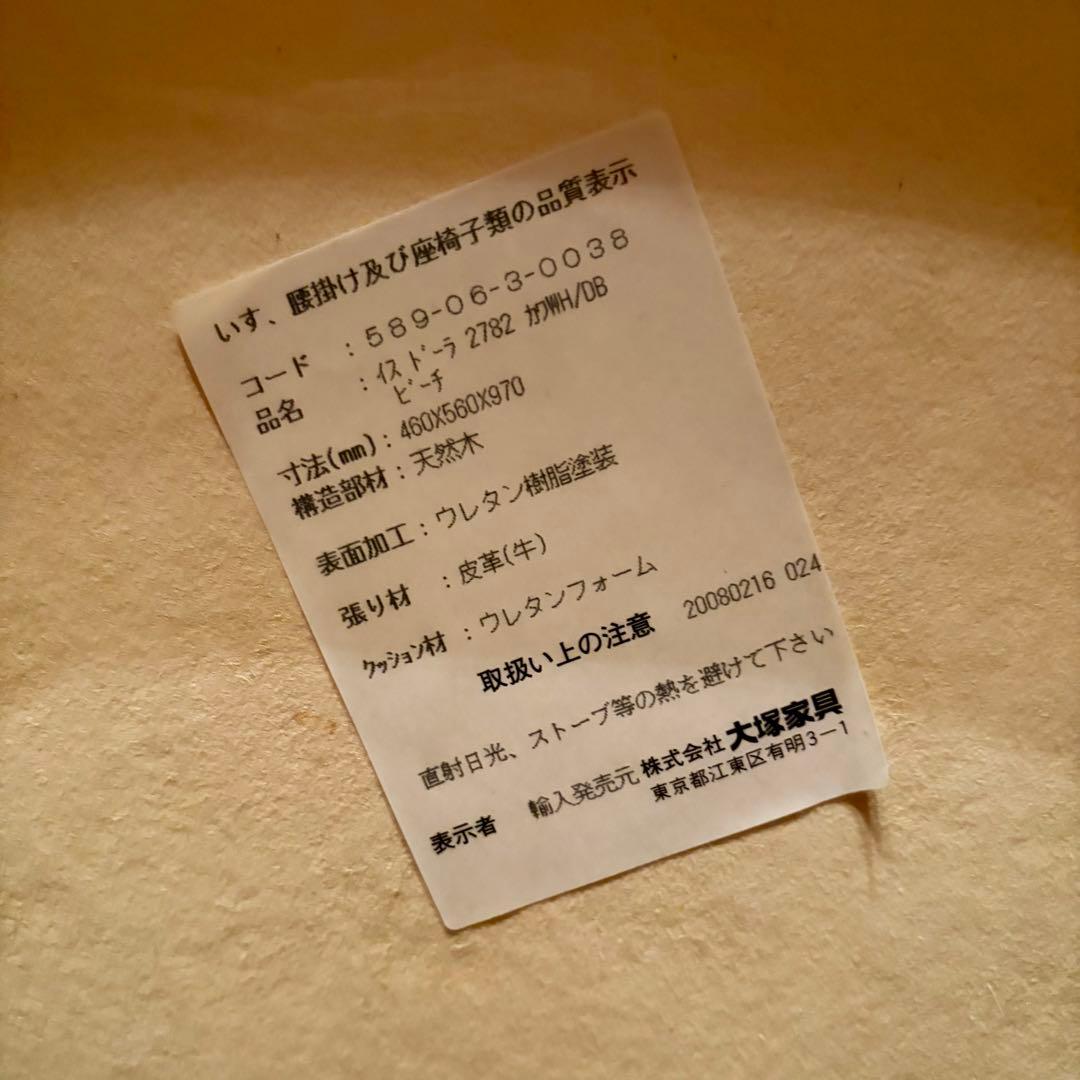 いす、腰掛け及び座椅子類の品質表示
コード ：５８９-０６-３-００３８
品名 ：ｲｽ ﾄﾞｰﾗ 2782 ｶﾜWH/DB
ﾋﾞｰﾁ
寸法(mm)：460X560X970
構造部材：天然木
表面加工：ウレタン樹脂塗装
張り材 ：皮革(牛)
ｸｯｼｮﾝ材 ：ウレタンフォーム
取扱い上の注意 20080216 024
直射日光、ストーブ等の熱を避けて下さい
表示者 輸入発売元 株式会社 大塚家具
東京都江東区有明3－1